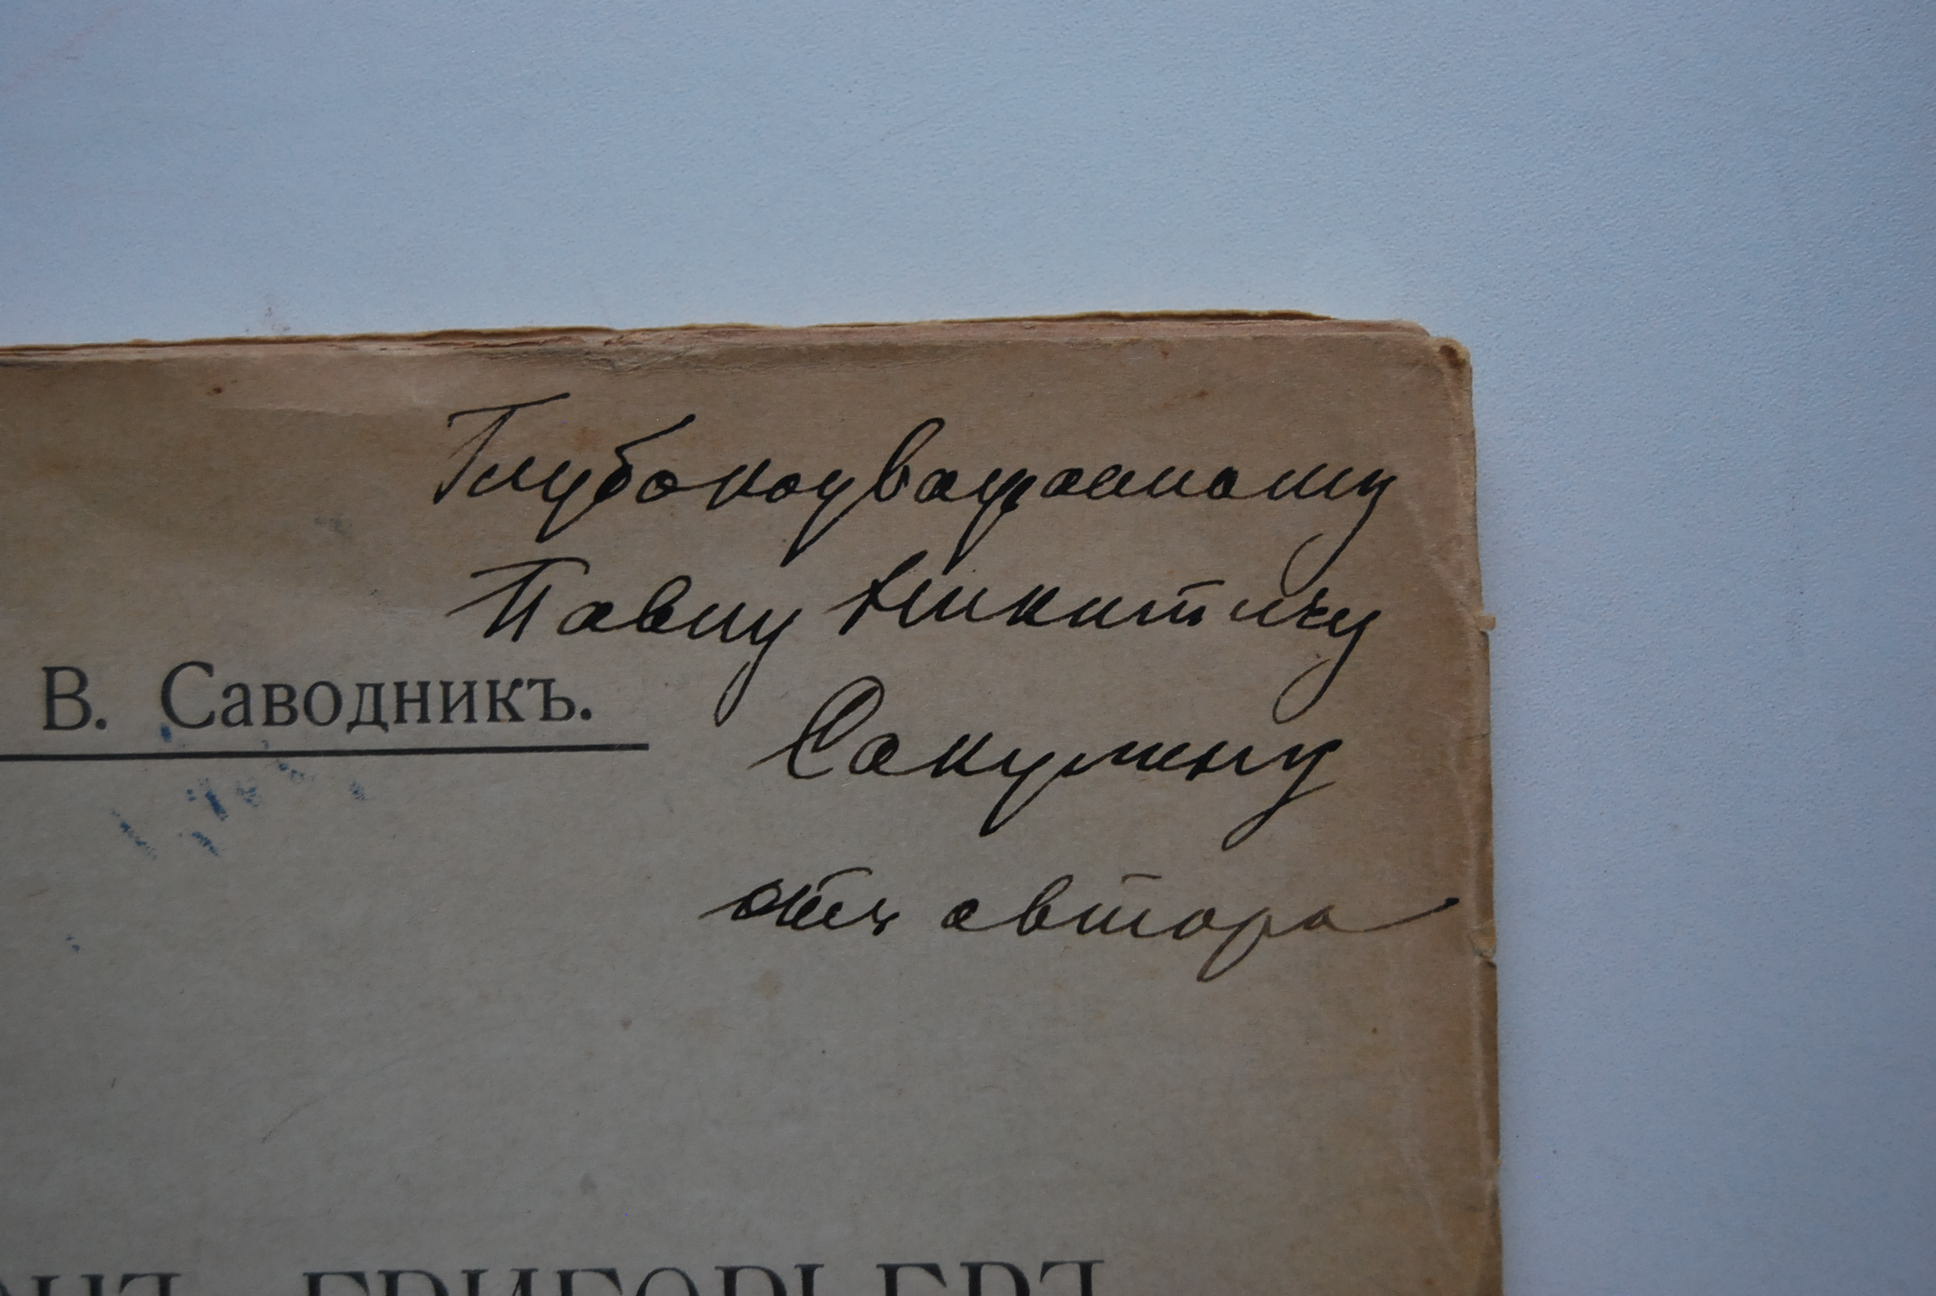 Глубокоуважаемому
Павлу Никитичу
В. Саводникъ.
Сакулину
отъ автора
ГРИГОРЬЕВЪ